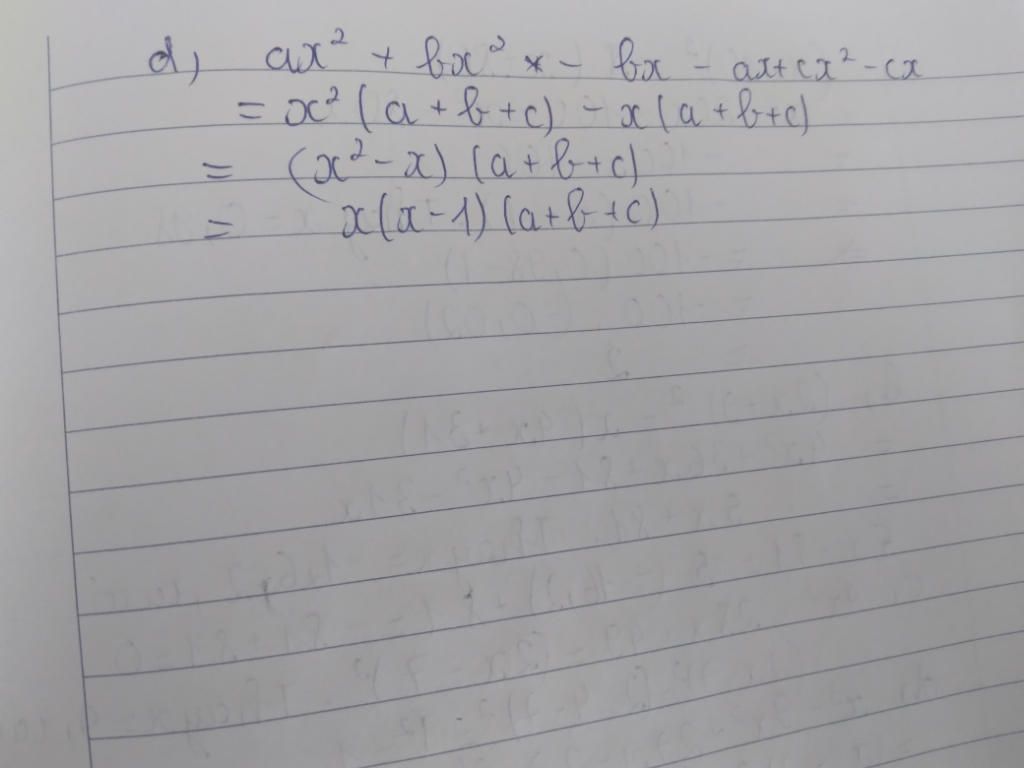 d, ax² + bx² - bx - ax + cx² - cx
= x² (a + b + c) - x (a + b + c)
= (x² - x) (a + b + c)
= x(x - 1) (a + b + c)